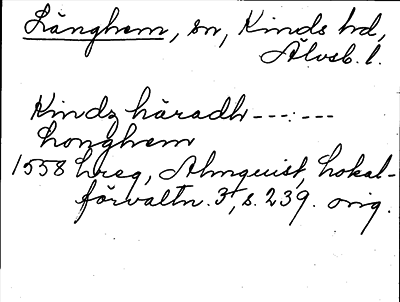 Långhem, sn, Kinds hd,
Älvsb. l.
Kindz häradh ---:---
Longhem
1558 hreg, Almquist, Lokal-
förvaltn. 3, s. 239. orig.